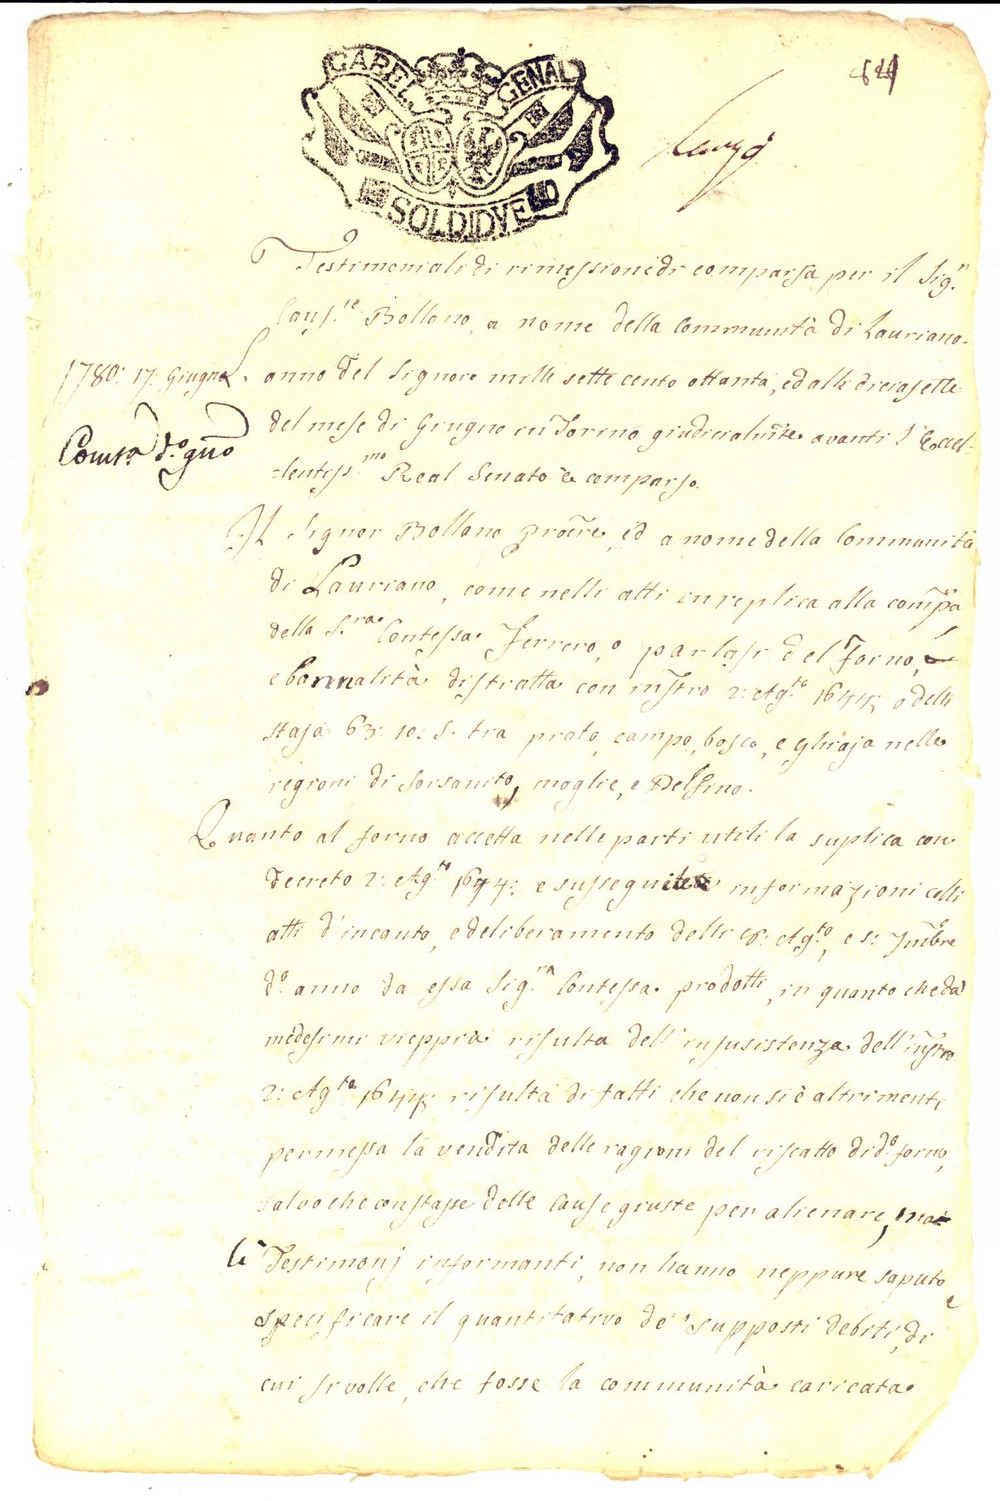 GABEL GENAL
SOLDI DVE
Testimoniali di rimessione di comparsa per il Sig.r
Caus.co Bollono a nome della Communità di Lauriano.
1780: 17: Giugno L'anno del Signore mille sette cento ottanta, ed alli diecisette
del mese di Giugno in Torino giudicialm.te avanti l'Eccel-
-lentiss.mo Real Senato è comparso
Il Signor Bollono Procre, ed a nome della Communità
di Lauriano, come nelli atti in replica alla comp.a
della S.ra Contessa Ferrero, o parlasi del Forno,
e bannalità distratta con instro 2: Ag.to 1644; o delli
staja 63: 10: s. tra prato, campo, bosco, e ghiaja nelle
regioni di Sorsanito, moglie, e Delfino.
Quanto al forno accetta nelle parti utili la suplica con
decreto 2: Ag.to 1644: e susseguite informazioni colli
atti d'incanto, e deliberamento delli 28: Ag.to, e s: 7mbre
d.o anno da essa Sig.ra Contessa prodotti, in quanto che da
medesimi vieppiù risulta dell'insusistenza dell'instro
2: Ag.to 1644; risulta di fatti che non si è altrimenti
permessa la vendita delle ragioni del riscatto di d.o forno,
salvo che constasse delle cause giuste per alienare, ma
li Testimonj informanti, non hanno neppure saputo
specificare il quantitativo de' supposti debiti, di
cui si volle, che fosse la communità caricata